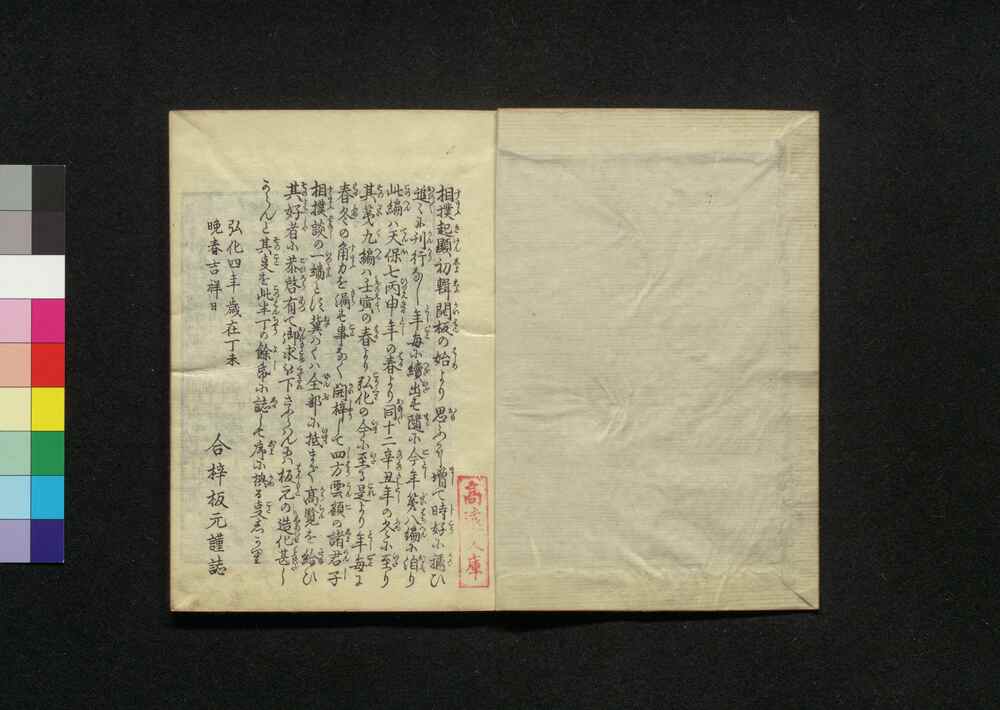 相撲起顕初輯開板の始より思ふより増て時好に稱ひ
進々に刊行なし年毎に續出せ隨に今年第八編に泊り
此編ハ天保七丙申年の春より同十二辛丑年の冬に至り
其第九編ハ壬寅の春より弘化の今に至る是より年毎に
春冬の角力を漏せ事なく開梓して四方雲顧の諸君子
相撲談の一端とす冀くハ全部に抵まで高覧を給ひ
其好者に恭啓有て御求を下さらん叓板元の造化甚し
からんと其叓を此半丁の餘帋に誌して席に換る叓しかり
弘化四年歳在丁未
晩春吉祥日
合梓板元謹誌
高 文庫